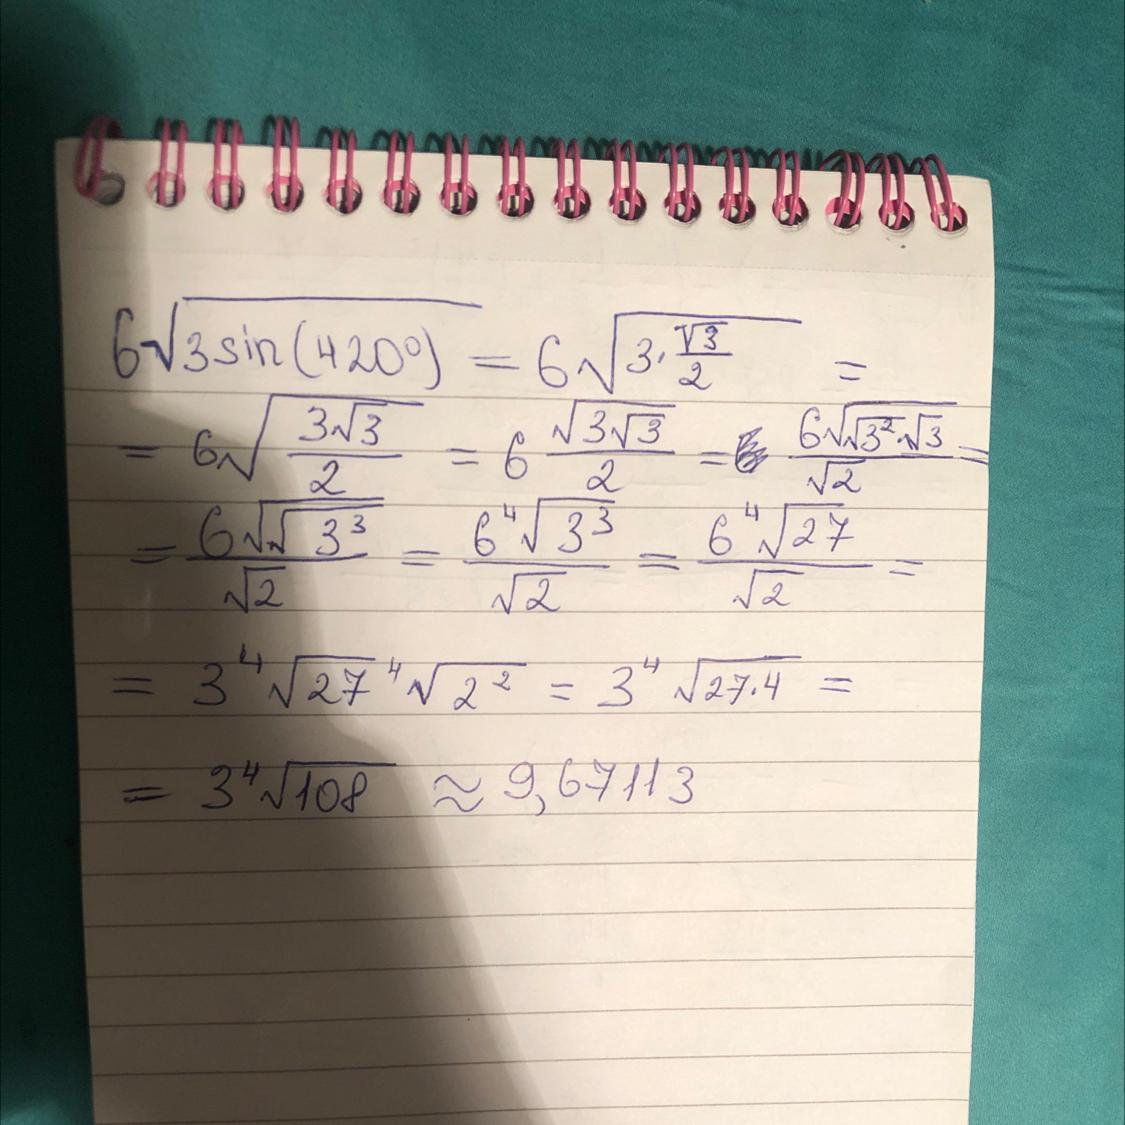 6√3sin(420°) = 6√3·√3/2 =
= 6√3√3/2 = 6 √3√3/2 = 6√√3²·√3/√2 =
= 6√√3³/√2 = 6⁴√3³/√2 = 6⁴√27/√2 =
= 3⁴√27 ⁴√2² = 3⁴√27·4 =
= 3⁴√108 ≈ 9,67113